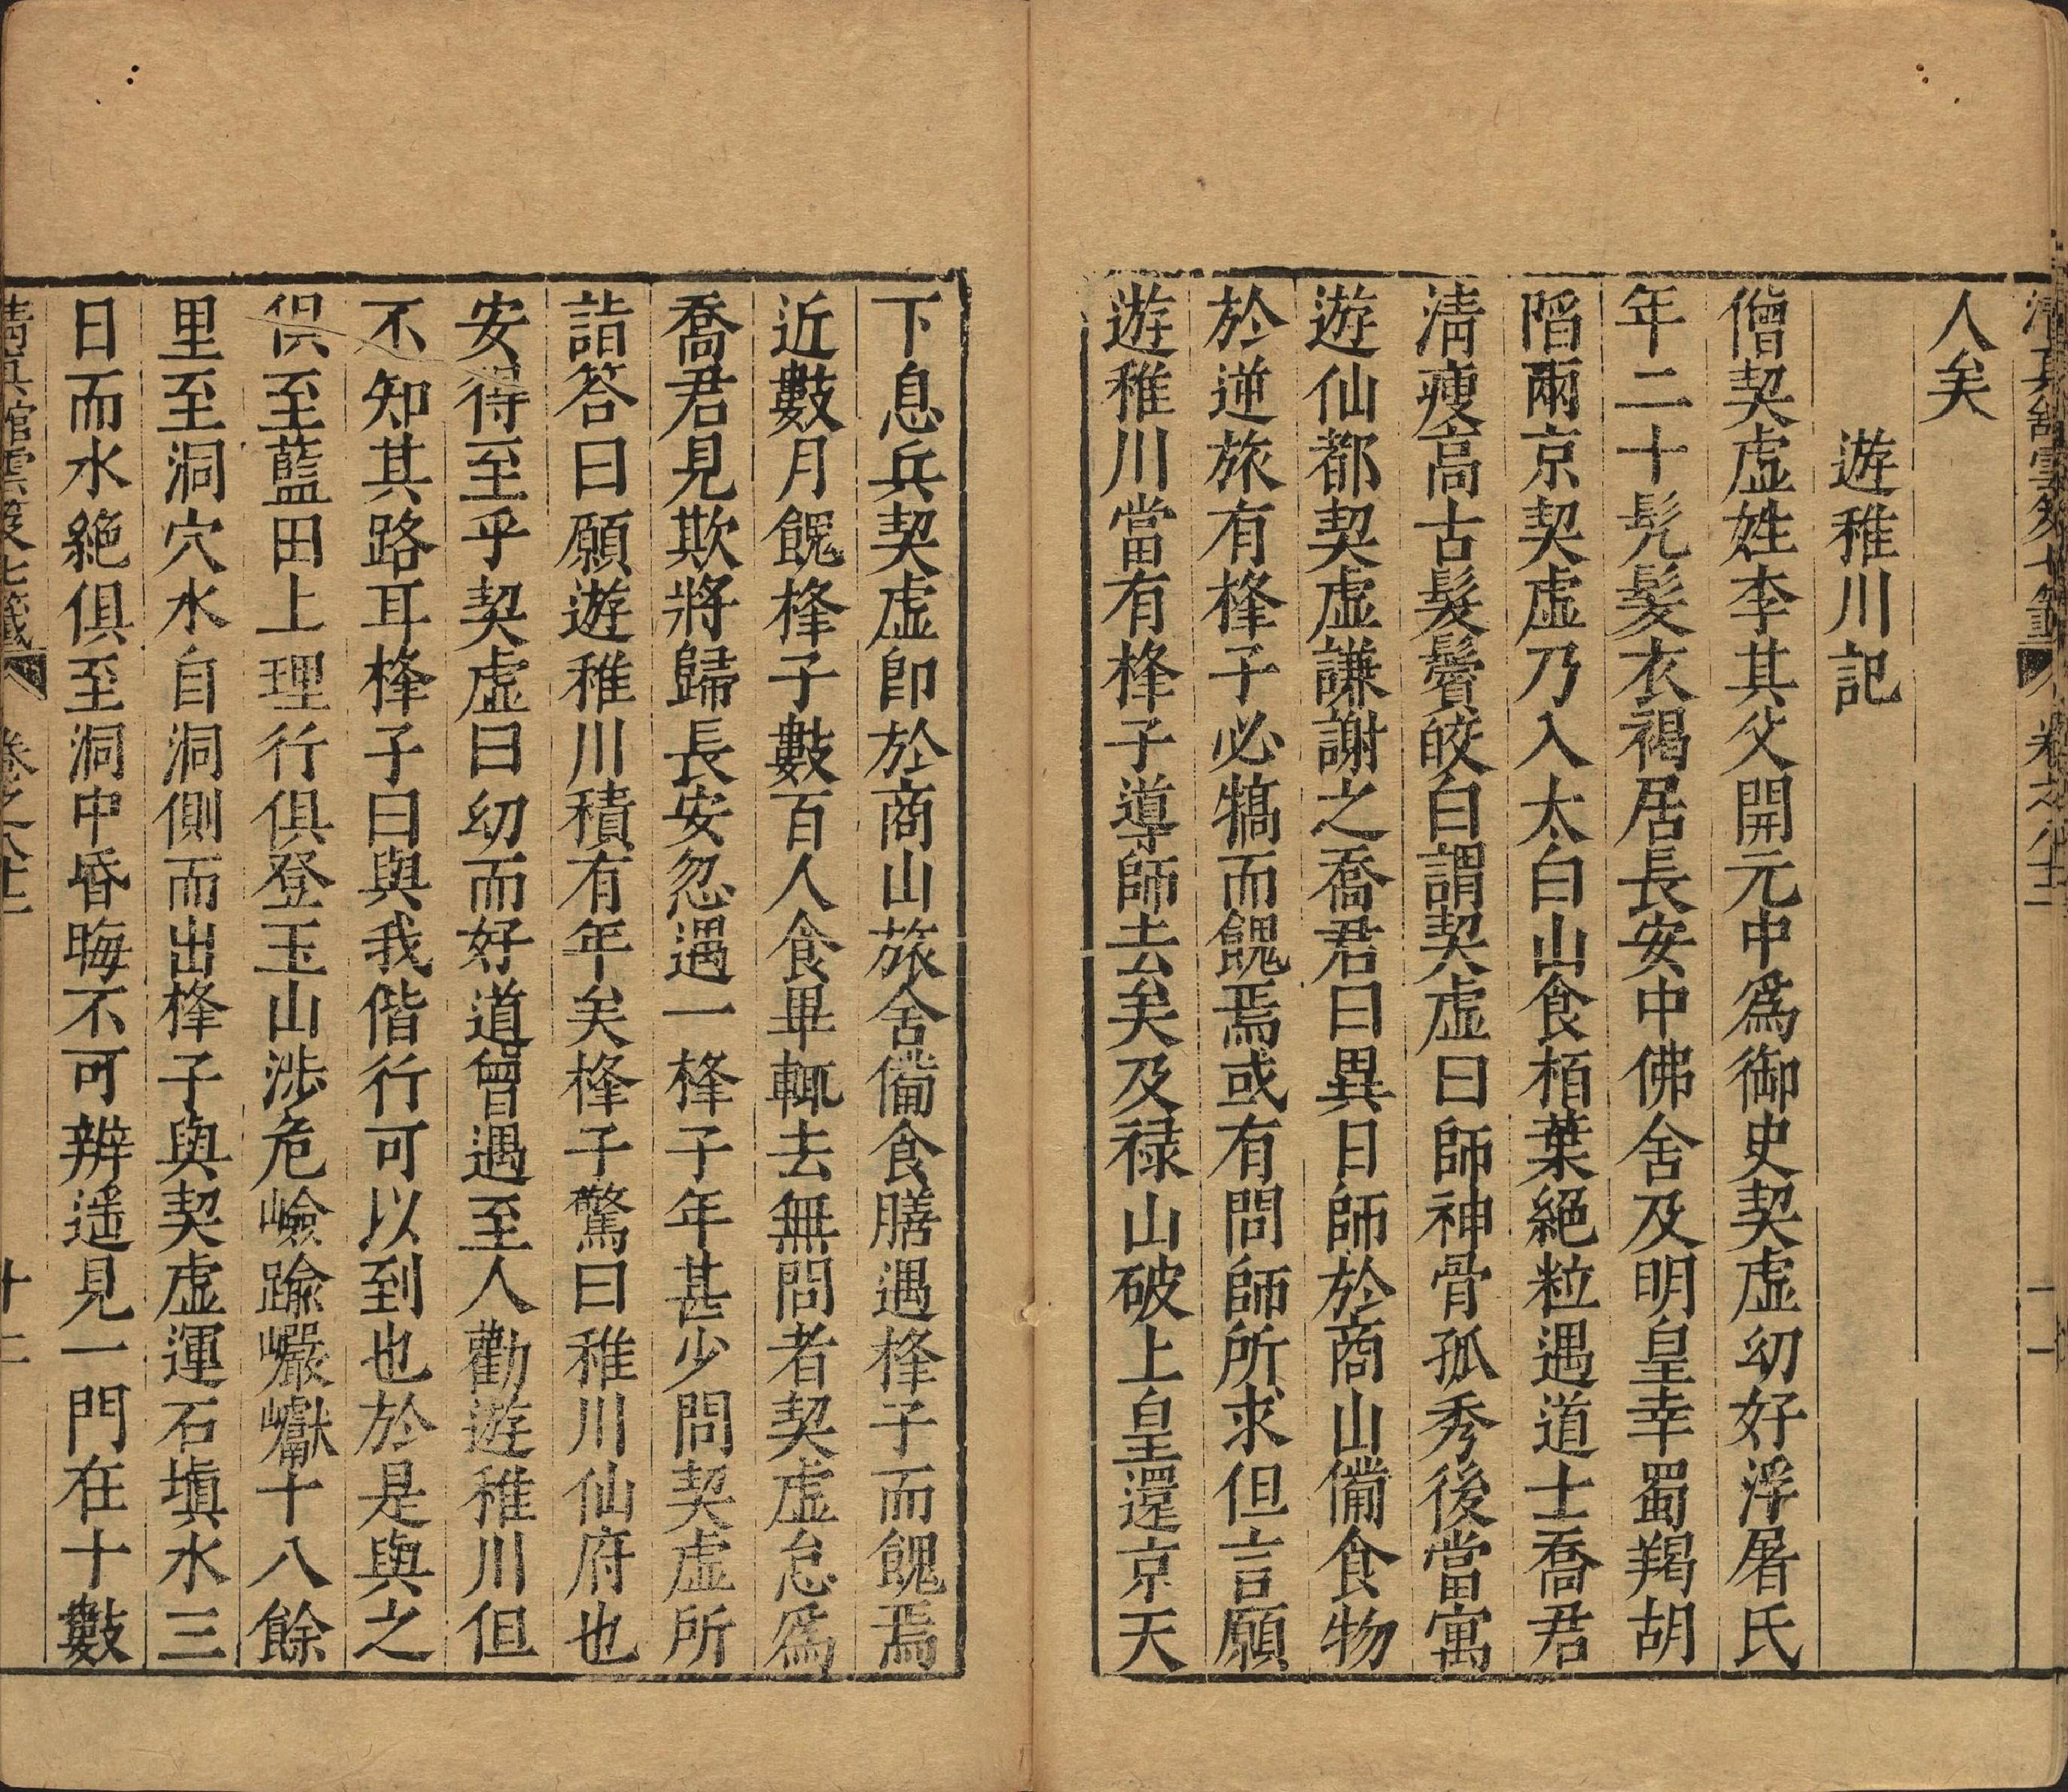 清真館雲笈七籤 卷之八十三 十一
人矣
遊稚川記
僧契虛姓李其父開元中爲御史契虛幼好浮屠氏
年二十髠髮衣褐居長安中佛舍及明皇幸蜀羯胡
陷兩京契虛乃入太白山食栢葉絕粒遇道士喬君
淸瘦高古髮鬢皎白謂契虛曰師神骨孤秀後當寓
遊仙都契虛謙謝之喬君曰異日師於商山備食物
於逆旅有㭔子必犒而餽焉或有問師所求但言願
遊稚川當有㭔子導師去矣及禄山破上皇還京天
下息兵契虛卽於商山旅舍備食膳遇㭔子而餽焉
近數月餽㭔子數百人食畢輒去無問者契虛怠爲
喬君見欺將歸長安忽遇一㭔子年甚少問契虛所
詣答曰願遊稚川積有年矣㭔子驚曰稚川仙府也
安得至乎契虛曰幼而好道曾遇至人勸遊稚川但
不知其路耳㭔子曰與我偕行可以到也於是與之
俱至藍田上理行俱登玉山涉危嶮踰巖巘十八餘
里至洞穴水自洞側而出㭔子與契虛運石塡水三
日而水絕俱至洞中昏晦不可辨遥見一門在十數
清真館雲笈七籤 卷之八十三 十二